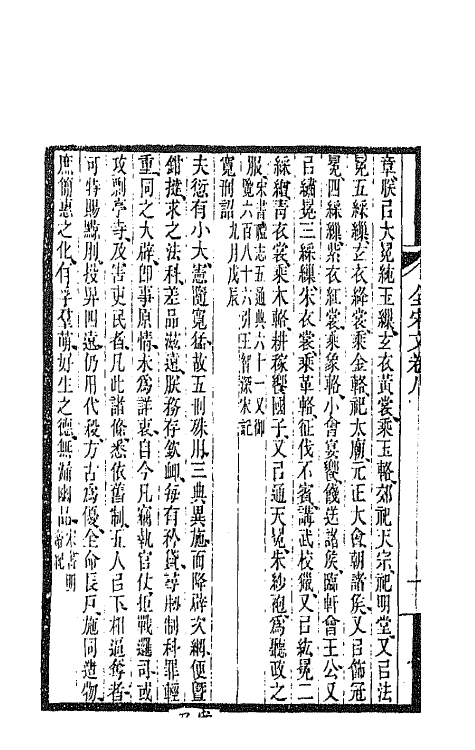 全宋文卷八
章朕㠯大冕純玉繅玄衣黃裳乘玉輅郊祀天宗祀明堂又㠯法
冕五綵繅玄衣絳裳乘金輅祀太廟元正大會朝諸矦又㠯飾冠
冕四綵繅紫衣紅裳乘象輅小會宴饗餞送諸矦臨軒會王公又
㠯繡冕三綵繅朱衣裳乘革輅征伐不賓講武校獵又㠯紘冕二
綵繅青衣裳乘木輅耕稼饗國子又㠯通天冕朱紗袍爲聽政之
服宋書禮志五通典六十一又御
覽六百八十六引王智深宋記
寬刑詔九月戊辰
夫愆有小大憲隨寬猛故五刑殊用三典異施而降辟次網便暨
鉗撻求之法科差品滋遠朕務存欽卹每有矜貸尋劫制科罪輕
重同之大辟卽事原情未爲詳衷自今凡竊執官仗拒戰邏司或
攻剽亭寺及害吏民者凡此諸條悉依舊制五人㠯下相逼奪者
可特賜黥刖投畀四遠仍用代殺方古爲優全命長戶施同造物
庶簡惠之化有孚羣萌好生之德無漏幽品宋書明
帝紀